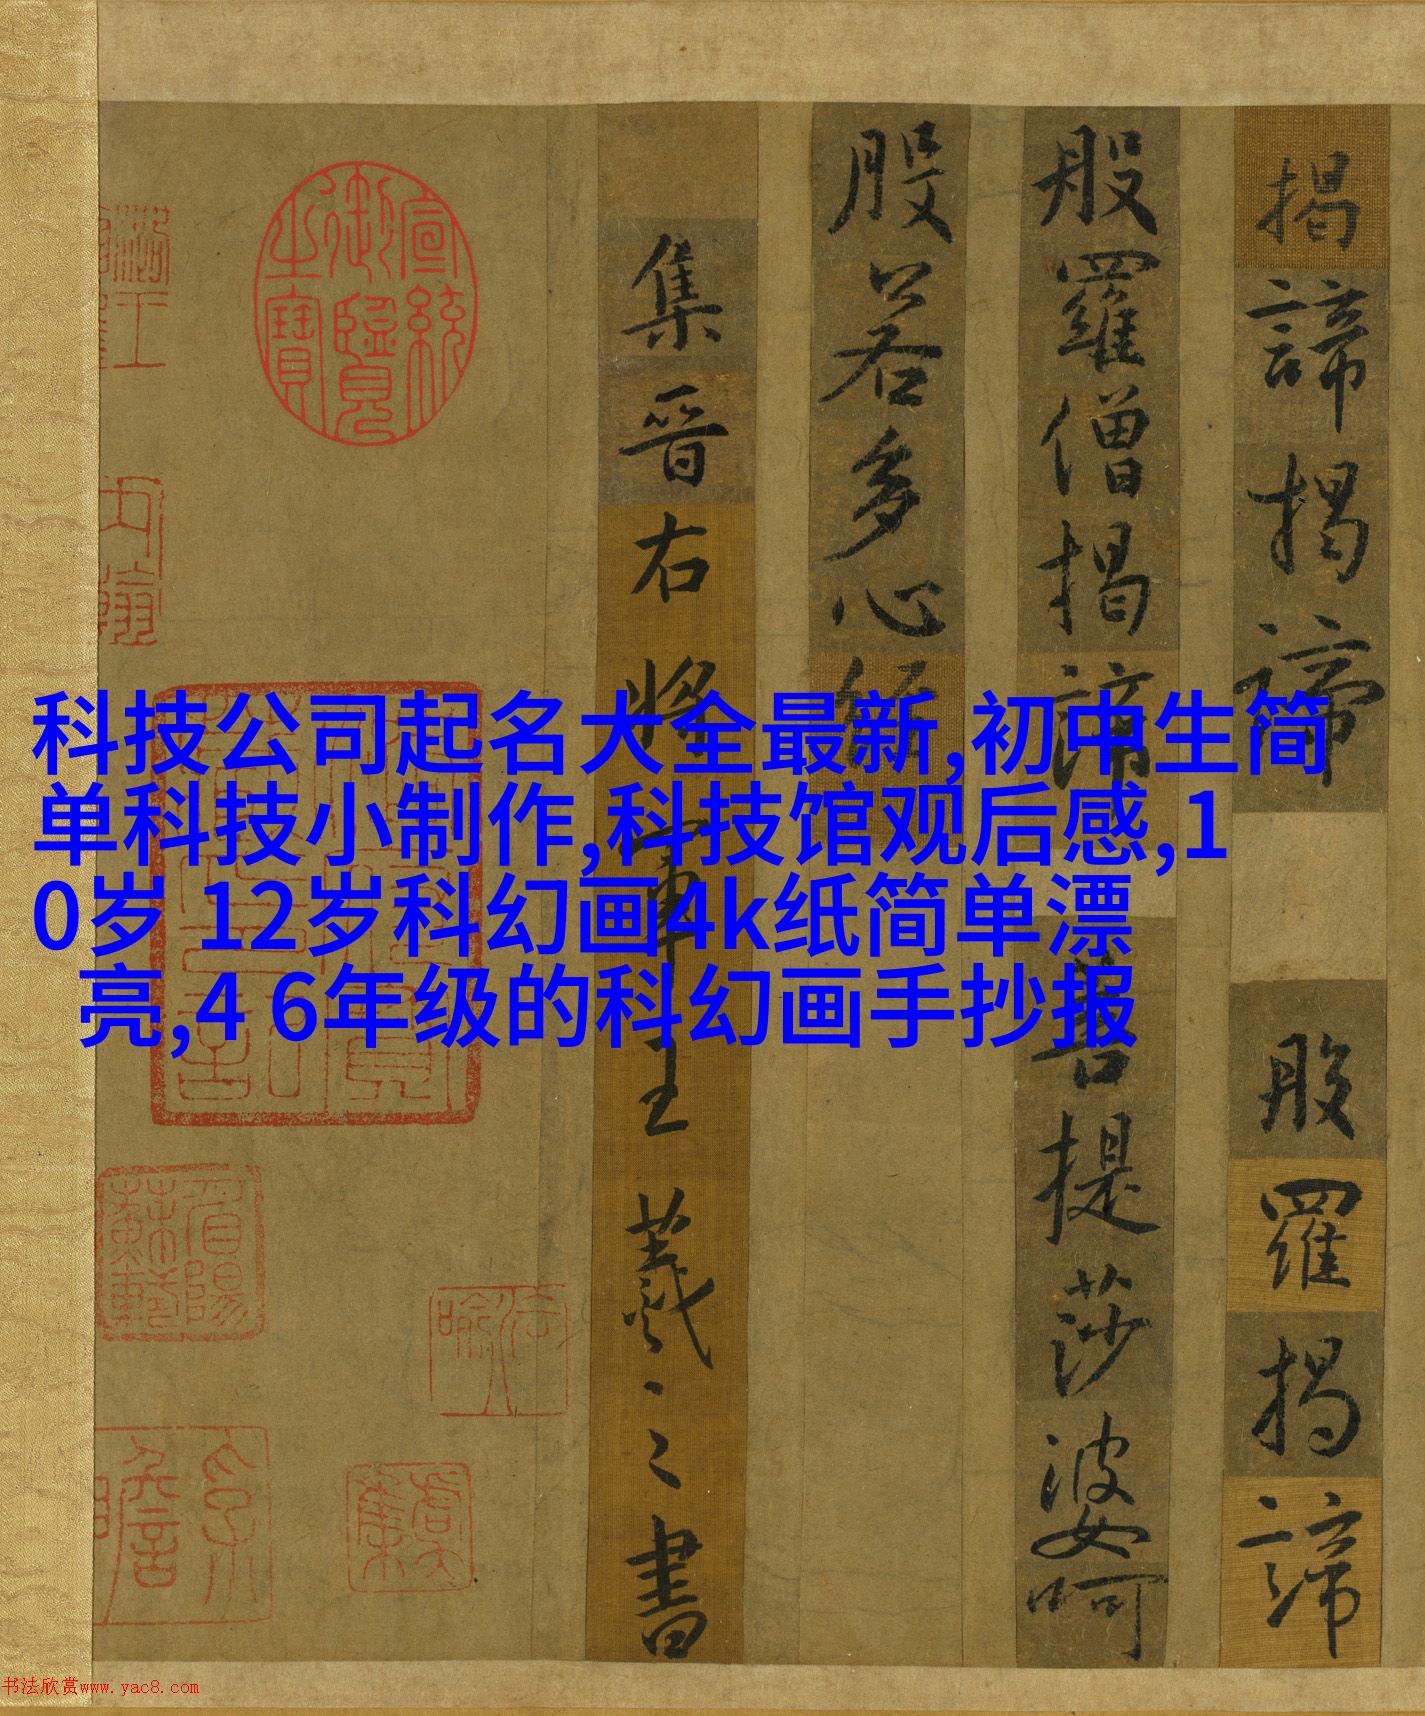 揭諦揭諦
般羅揭諦
般羅僧揭諦
菩提莎婆呵
般若多心經
集晉右將軍王羲之書
科技公司起名大全最新,初中生简
单科技小制作,科技馆观后感,1
0岁 12岁科幻画4k纸简单漂
亮,4 6年级的科幻画手抄报
宣統御覽之寶
眉陽蘇軾
书法欣赏www.yac8.com